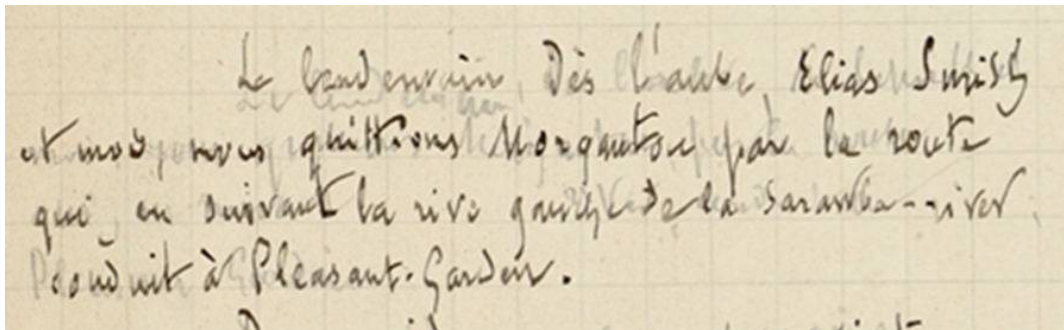 Le lendemain, dès l'aube, Elias Smith
et moi, nous quittions Morganton par la route
qui, en suivant la rive gauche de la Sarawba-river,
conduit à Pleasant-Garden.